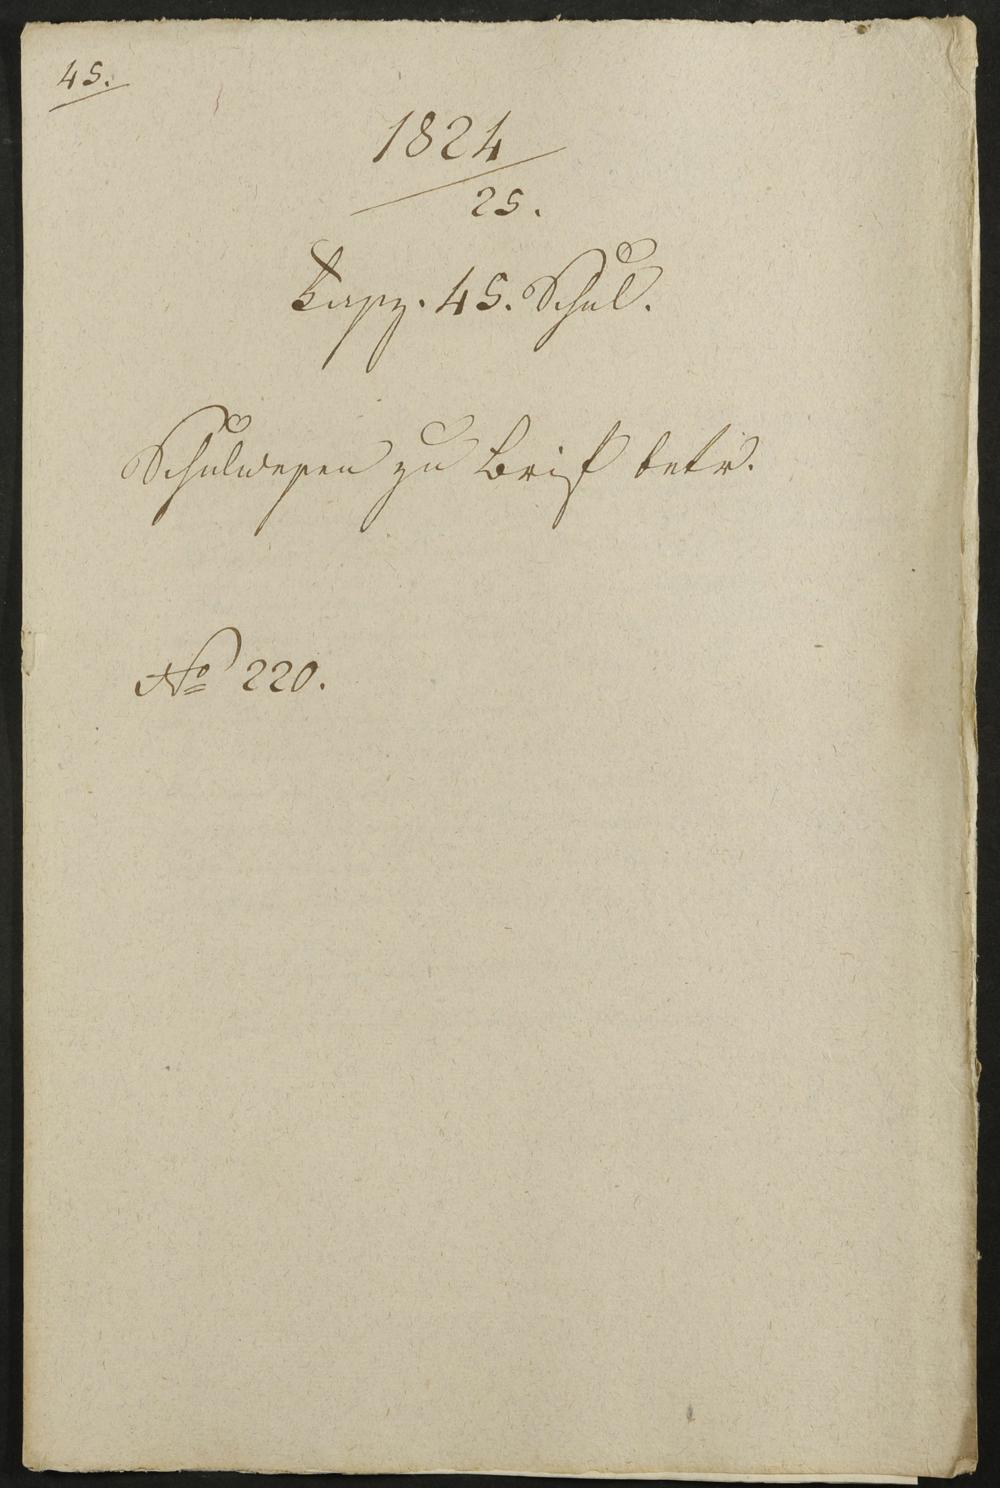 45.
1824
25.
Fasz. 45. Schul.
Schulwesen zu Brisß betr.
No 220.